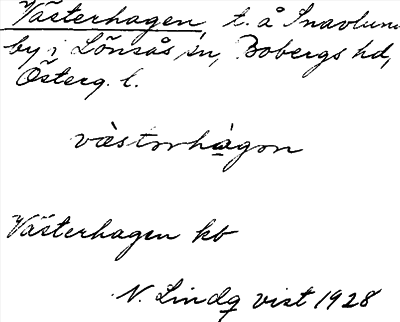 Västerhagen, t. å Snavlun
by i Lönsås sn, Bobergs hd,
Österg. l.
västorrhagon
Västerhagen kb
N. Lindqvist 1928